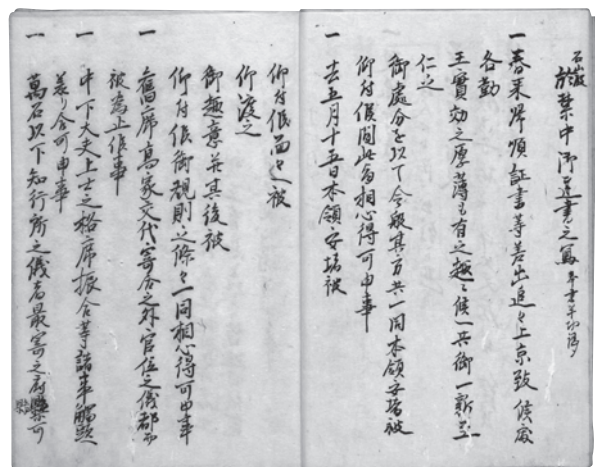 於禁中御達書之写
一 春来帰順証書等差出追々上京致候処
各勤
王実効之厚薄も有之趣ニ候へ共御一新至
仁之
御処分を以て今般其方共一同本領安堵被
仰付候間此旨相心得可申事
一 去五月十五日本領安堵被
仰付候面々被
仰渡之
御趣意并其後被
仰付候御規則之条々一同相心得可申事
一 旧席高家交代寄合之外官位之儀都而
被為止候事
一 中下大夫上士之格席振合等諸事触頭
差図可申事
一 萬石以下知行所之儀者最寄之府県可